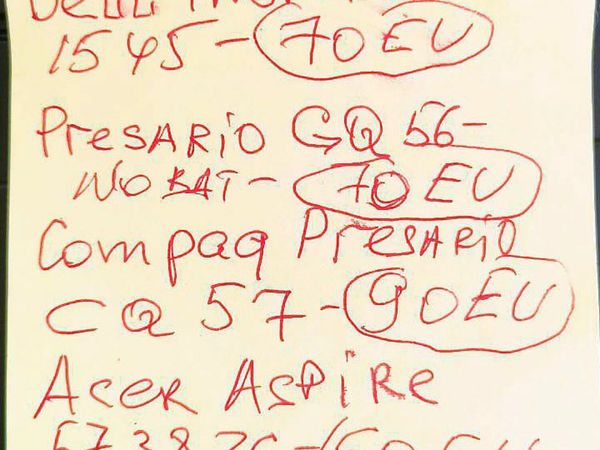 DELL
1545 - 70 EU
PRESARIO CQ 56 -
NO BAT - 70 EU
Compaq PRESARIO
CQ 57 - 90 EU
ACER ASPIRE